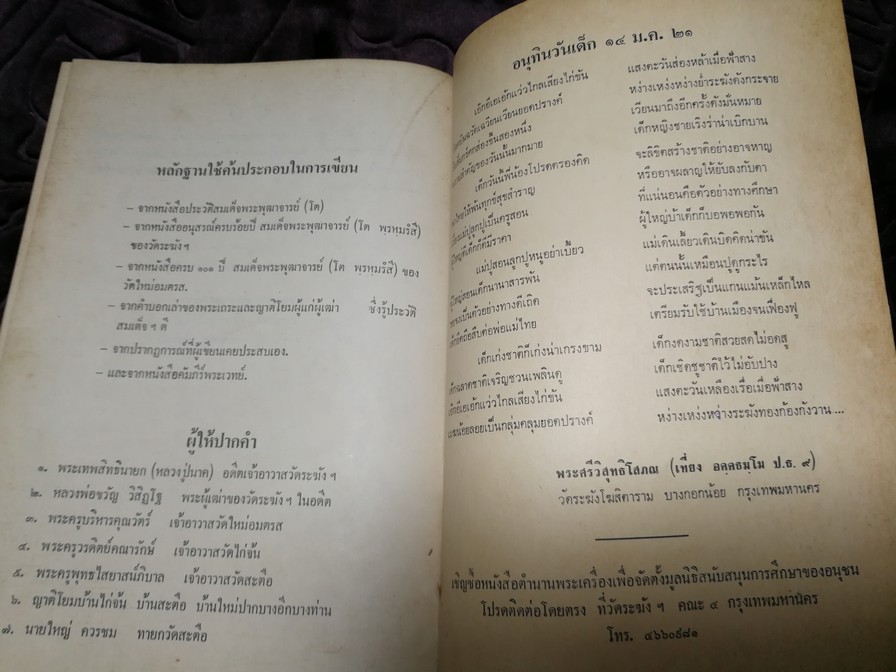 หลักฐานใช้ค้นประกอบในการเขียน
– จากหนังสือประวัติสมเด็จพระพุฒาจารย์ (โต)
– จากหนังสืออนุสรณ์ครบร้อยปี สมเด็จพระพุฒาจารย์ (โต พฺรหฺมรํสี)
ของวัดระฆังฯ
– จากหนังสือครบ ๑๐๑ ปี สมเด็จพระพุฒาจารย์ (โต พฺรหฺมรํสี) ของ
วัดใหม่อมตรส.
– จากคำบอกเล่าของพระเถระและญาติโยมผู้แก่ผู้เฒ่า ซึ่งรู้ประวัติ
สมเด็จ ฯ ดี
– จากปรากฏการณ์ที่ผู้เขียนเคยประสบเอง.
– และจากหนังสือคัมภีร์พระเวทย์.
ผู้ให้ปากคำ
๑. พระเทพสิทธินายก (หลวงปู่นาค) อดีตเจ้าอาวาสวัดระฆัง ฯ
๒. หลวงพ่อขวัญ วิสิฏโฐ พระผู้เฒ่าของวัดระฆัง ฯ ในอดีต
๓. พระครูบริหารคุณวัตร์ เจ้าอาวาสวัดใหม่อมตรส
๔. พระครูวรดิตย์คณารักษ์ เจ้าอาวาสวัดไก่จ้น
๕. พระครูพุทธไสยาสน์ภิบาล เจ้าอาวาสวัดสะตือ
๖. ญาติโยมบ้านไก่จ้น บ้านสะตือ บ้านใหม่ปากบางอีกบางท่าน
๗. นายใหญ่ ควรชม ทายกวัดสะตือ
อนุทินวันเด็ก ๑๔ ม.ค. ๒๑
เอ้กอี๊เอเอ้กแว่วไกลเสียงไก่ขัน แสงตะวันส่องหล้าเมื่อฟ้าสาง
เวียนยอดปรางค์ หง่างเหง่งหง่างย่ำระฆังดังกระจาย
ส่องขึ้นสองหนึ่ง เวียนมาถึงอีกครั้งดังมั่นหมาย
ของวันนั้นมากมาย เด็กหญิงชายเริงร่าน่าเบิกบาน
เด็กวันนี้พี่น้องโปรดตรองคิด จะลิขิตสร้างชาติอย่างอาจหาญ
ให้พ้นทุกข์สุขสำราญ หรืออาจผลาญให้ยับลงกับตา
ปลูกปูเป็นครูสอน ที่แน่นอนคือตัวอย่างทางศึกษา
เด็กก็ดีมีราคา ผู้ใหญ่บ้าเด็กก็บอพอพอกัน
แม่ปูสอนลูกปูหนูอย่าเบี้ยว แม่เดินเลี้ยวเดินบิดคิดน่าขัน
สอนเด็กนานาสารพัน แต่ตนนั้นเหมือนปูดูกระไร
เป็นตัวอย่างทางดีเถิด จะประเสริฐเป็นแกนแม้นเหล็กไหล
สืบต่อพ่อแม่ไทย เตรียมรับใช้บ้านเมืองจนเฟื่องฟู
เด็กเก่งชาติก็เก่งน่าเกรงขาม เด็กงดงามชาติสวยสดไม่อดสู
เด็กฉลาดชาติเจริญชวนเพลินดู เด็กเชิดชูชาติไว้ไม่อับปาง
เอ้กอี๊เอเอ้กแว่วไกลเสียงไก่ขัน แสงตะวันเหลืองเรื่อเมื่อฟ้าสาง
น้อยลอยเป็นกลุ่มคลุมยอดปรางค์ หง่างเหง่งหง่างระฆังทองก้องกังวาน ...
พระศรีวิสุทธิโสภณ (เที่ยง อคฺคธมฺโม ป.ธ. ๙)
วัดระฆังโฆสิตาราม บางกอกน้อย กรุงเทพมหานคร
เชิญซื้อหนังสือตำนานพระเครื่องเพื่อจัดตั้งมูลนิธิสนับสนุนการศึกษาของอนุชน
โปรดติดต่อโดยตรง ที่วัดระฆัง ฯ คณะ ๔ กรุงเทพมหานคร
โทร. ๔๖๖๐๙๘๑